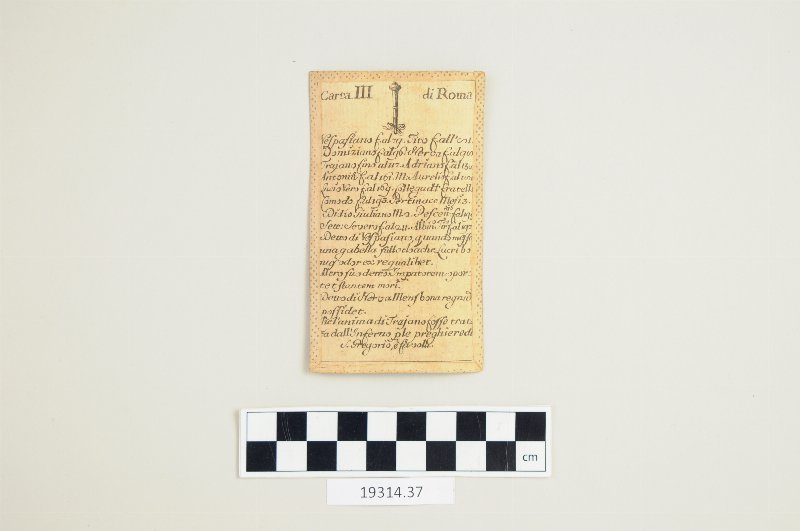 Carta III di Roma
Vespasiano f. al 79. Tito f. all' 81.
Domiziano f. al 96. Nerva f. al 98
Trajano fino al 117. Adriano f. al 138
Antonino f. al 161. M. Aurelio f. al
Lucio Vero f. al 169.
Comodo f. al 192. Pertinace Mesi 2.
Didio Giuliano M. 2.
Seve. Severo f. al 211.
Detto di Vespasiano quando misse
una gabella Lucri bo
nus odor ex re qualibet.
Altro suo detto Imperatorem opor-
tet stantem mori.
Detto di Nerva Mens bona regnũ
possidet.
Che l'anima di Trajano fosse trat
ta dall'Inferno p le preghiere di
S. Gregorio, è favola.
cm
19314.37